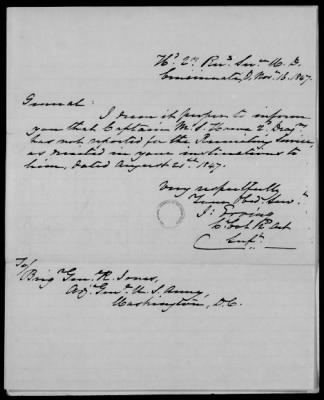 Hd. 2nd
Cincinnati, O. Nov. 16. 1847.
General:
I deem it proper to inform
you that Captain M. S. Howe 2d Drags
has not reported for the Recruiting Service,
as directed in your instructions to
him, dated August 21st 1847.
Very respectfully
Your Obdt Servt
J. Erving
Supt
To/
Brigr Genl R. Jones,
Adjt Genl U. S. Army,
Washington, D.C.